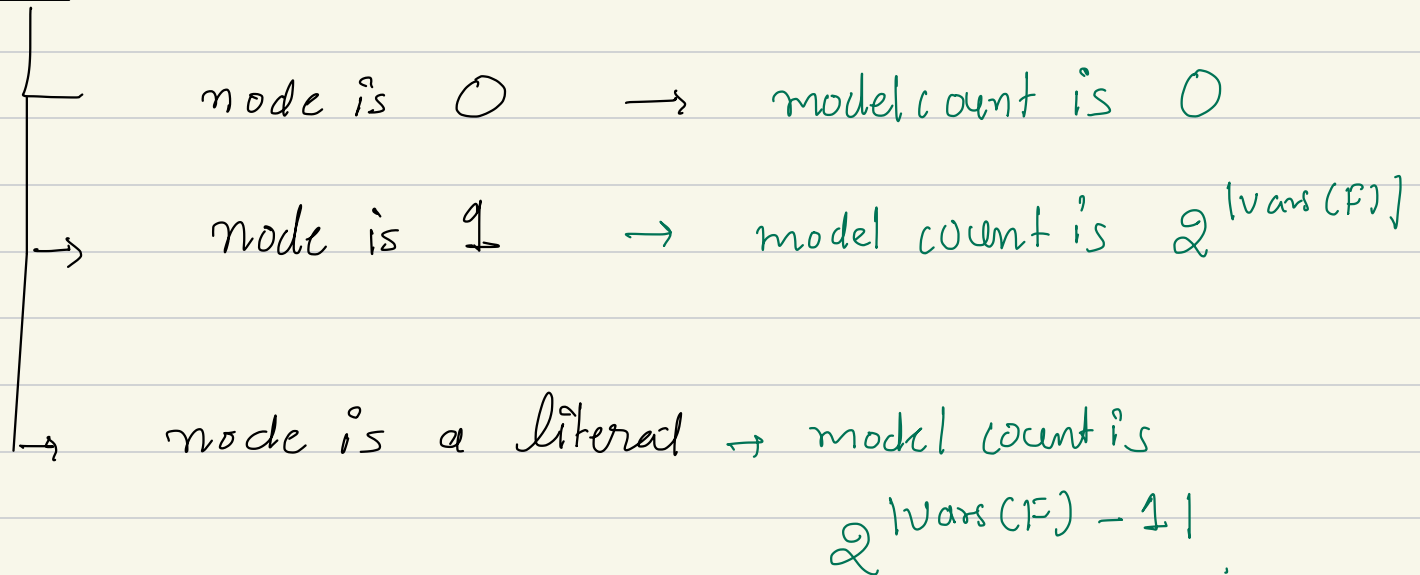 node is 0 → model count is 0
node is 1 → model count is 2^|vars(F)|
→ node is a literal → model count is
2^|vars(F) - 1|.